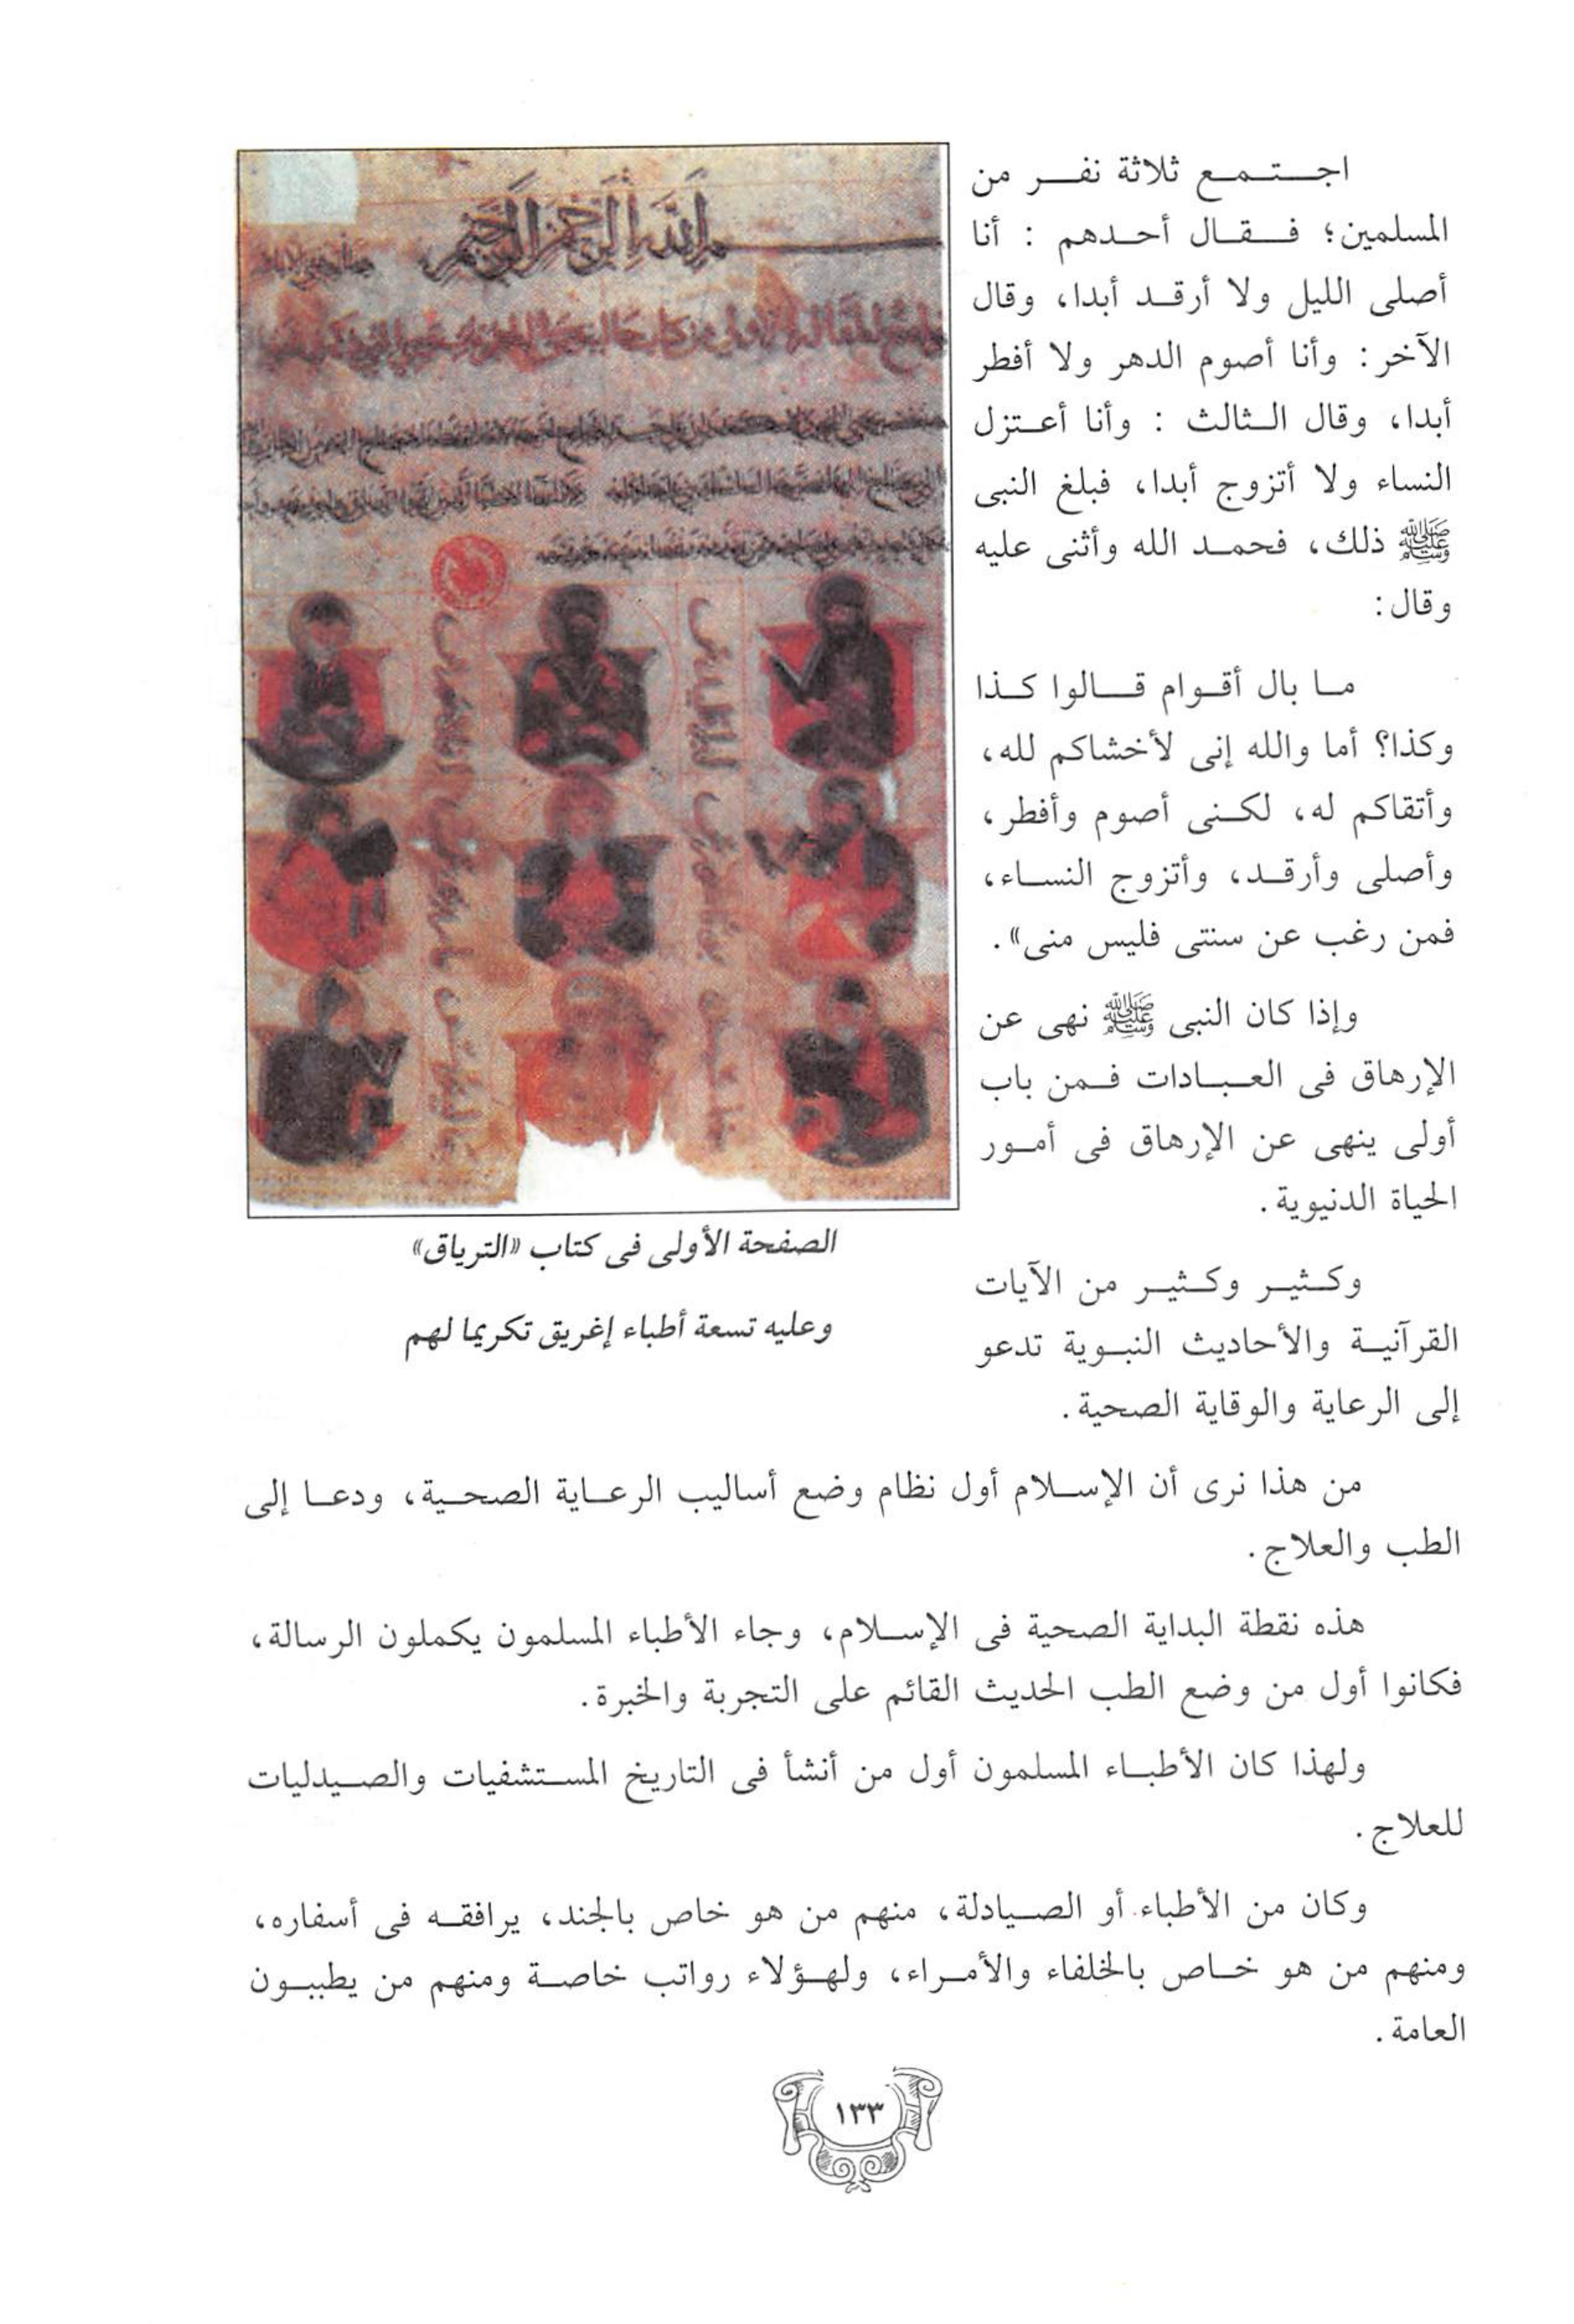 اجتمع ثلاثة نفر من
المسلمين؛ فقال أحدهم : أنا
أصلى الليل ولا أرقد أبدا، وقال
الآخر: وأنا أصوم الدهر ولا أفطر
أبدا، وقال الثالث : وأنا أعتزل
النساء ولا أتزوج أبدا، فبلغ النبى
ﷺ ذلك، فحمد الله وأثنى عليه
وقال:
ما بال أقوام قالوا كذا
وكذا؟ أما والله إنى لأخشاكم لله،
وأتقاكم له، لكنى أصوم وأفطر،
وأصلى وأرقد، وأتزوج النساء،
فمن رغب عن سنتى فليس منى» .
وإذا كان النبى ﷺ نهى عن
الإرهاق فى العبادات فمن باب
أولى ينهى عن الإرهاق فى أمور
الحياة الدنيوية.
وكثير وكثير من الآيات
القرآنية والأحاديث النبوية تدعو
إلى الرعاية والوقاية الصحية.
الله الرحمن الرحيم
الصفحة الأولى فى كتاب «الترياق»
وعليه تسعة أطباء إغريق تكريما لهم
من هذا نرى أن الإسلام أول نظام وضع أساليب الرعاية الصحية، ودعا إلى
الطب والعلاج.
هذه نقطة البداية الصحية فى الإسلام، وجاء الأطباء المسلمون يكملون الرسالة،
فكانوا أول من وضع الطب الحديث القائم على التجربة والخبرة.
ولهذا كان الأطباء المسلمون أول من أنشأ فى التاريخ المستشفيات والصيدليات
للعلاج.
وكان من الأطباء أو الصيادلة، منهم من هو خاص بالجند، يرافقه فى أسفاره،
ومنهم من هو خاص بالخلفاء والأمراء، ولهؤلاء رواتب خاصة ومنهم من يطببون
العامة.
١٣٣